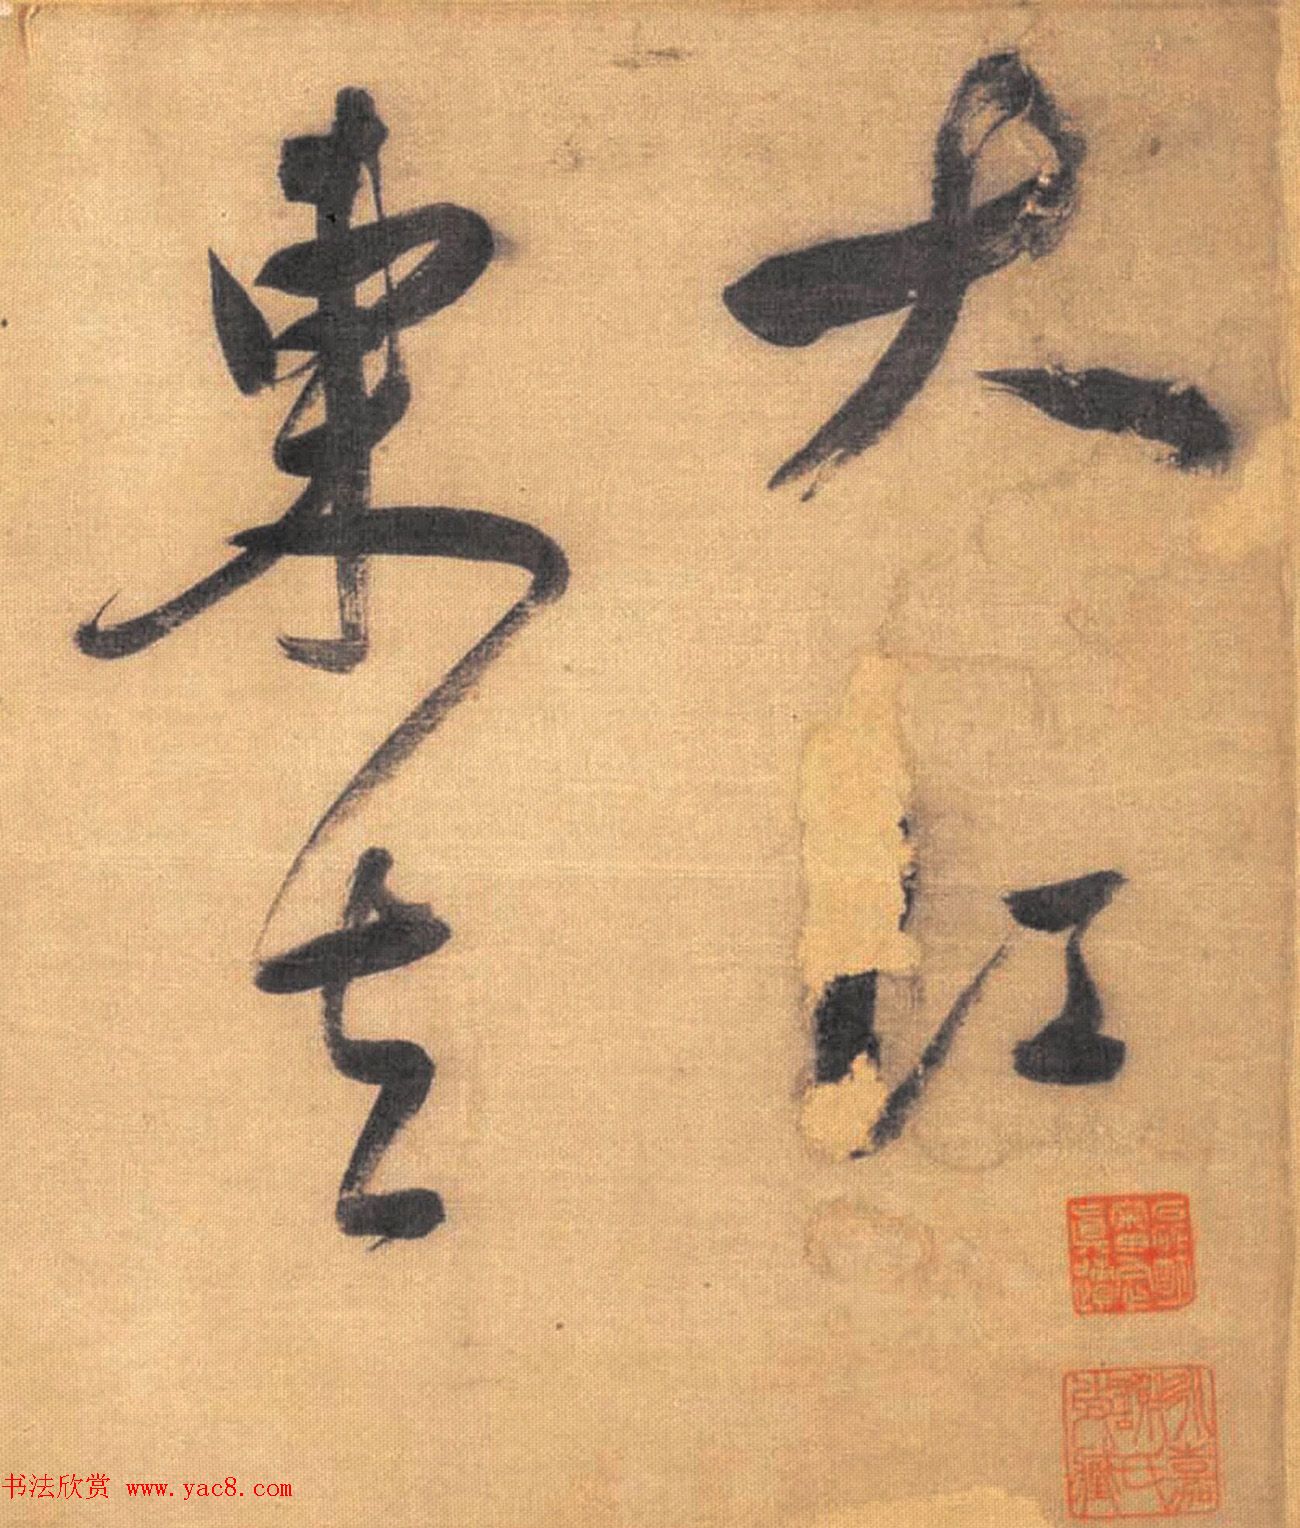 大江
東去
书法欣赏 www.yac8.com